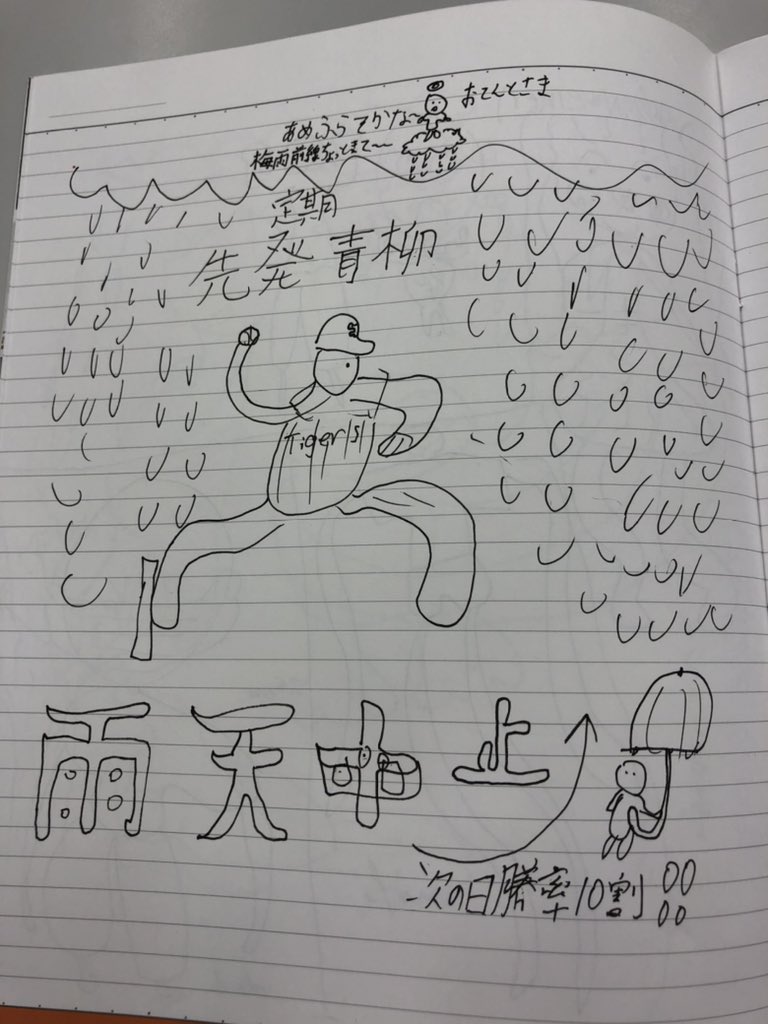 おてんとさま
あめふらすかな〜
梅雨前線ちょっとまて〜
定期
先発 青柳
tigers
雨天中止
次の日勝率10割